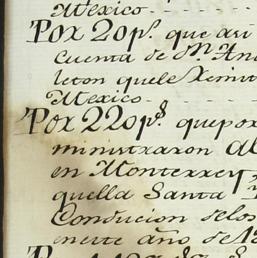 Mexico
Por 20 ps. que asi
Cuenta de Dn. An
leton que le remit
Mexico
Por 220 ps que por
ministraron al
en Monterrey
quella Santa
Conducion de los
ente año de 18